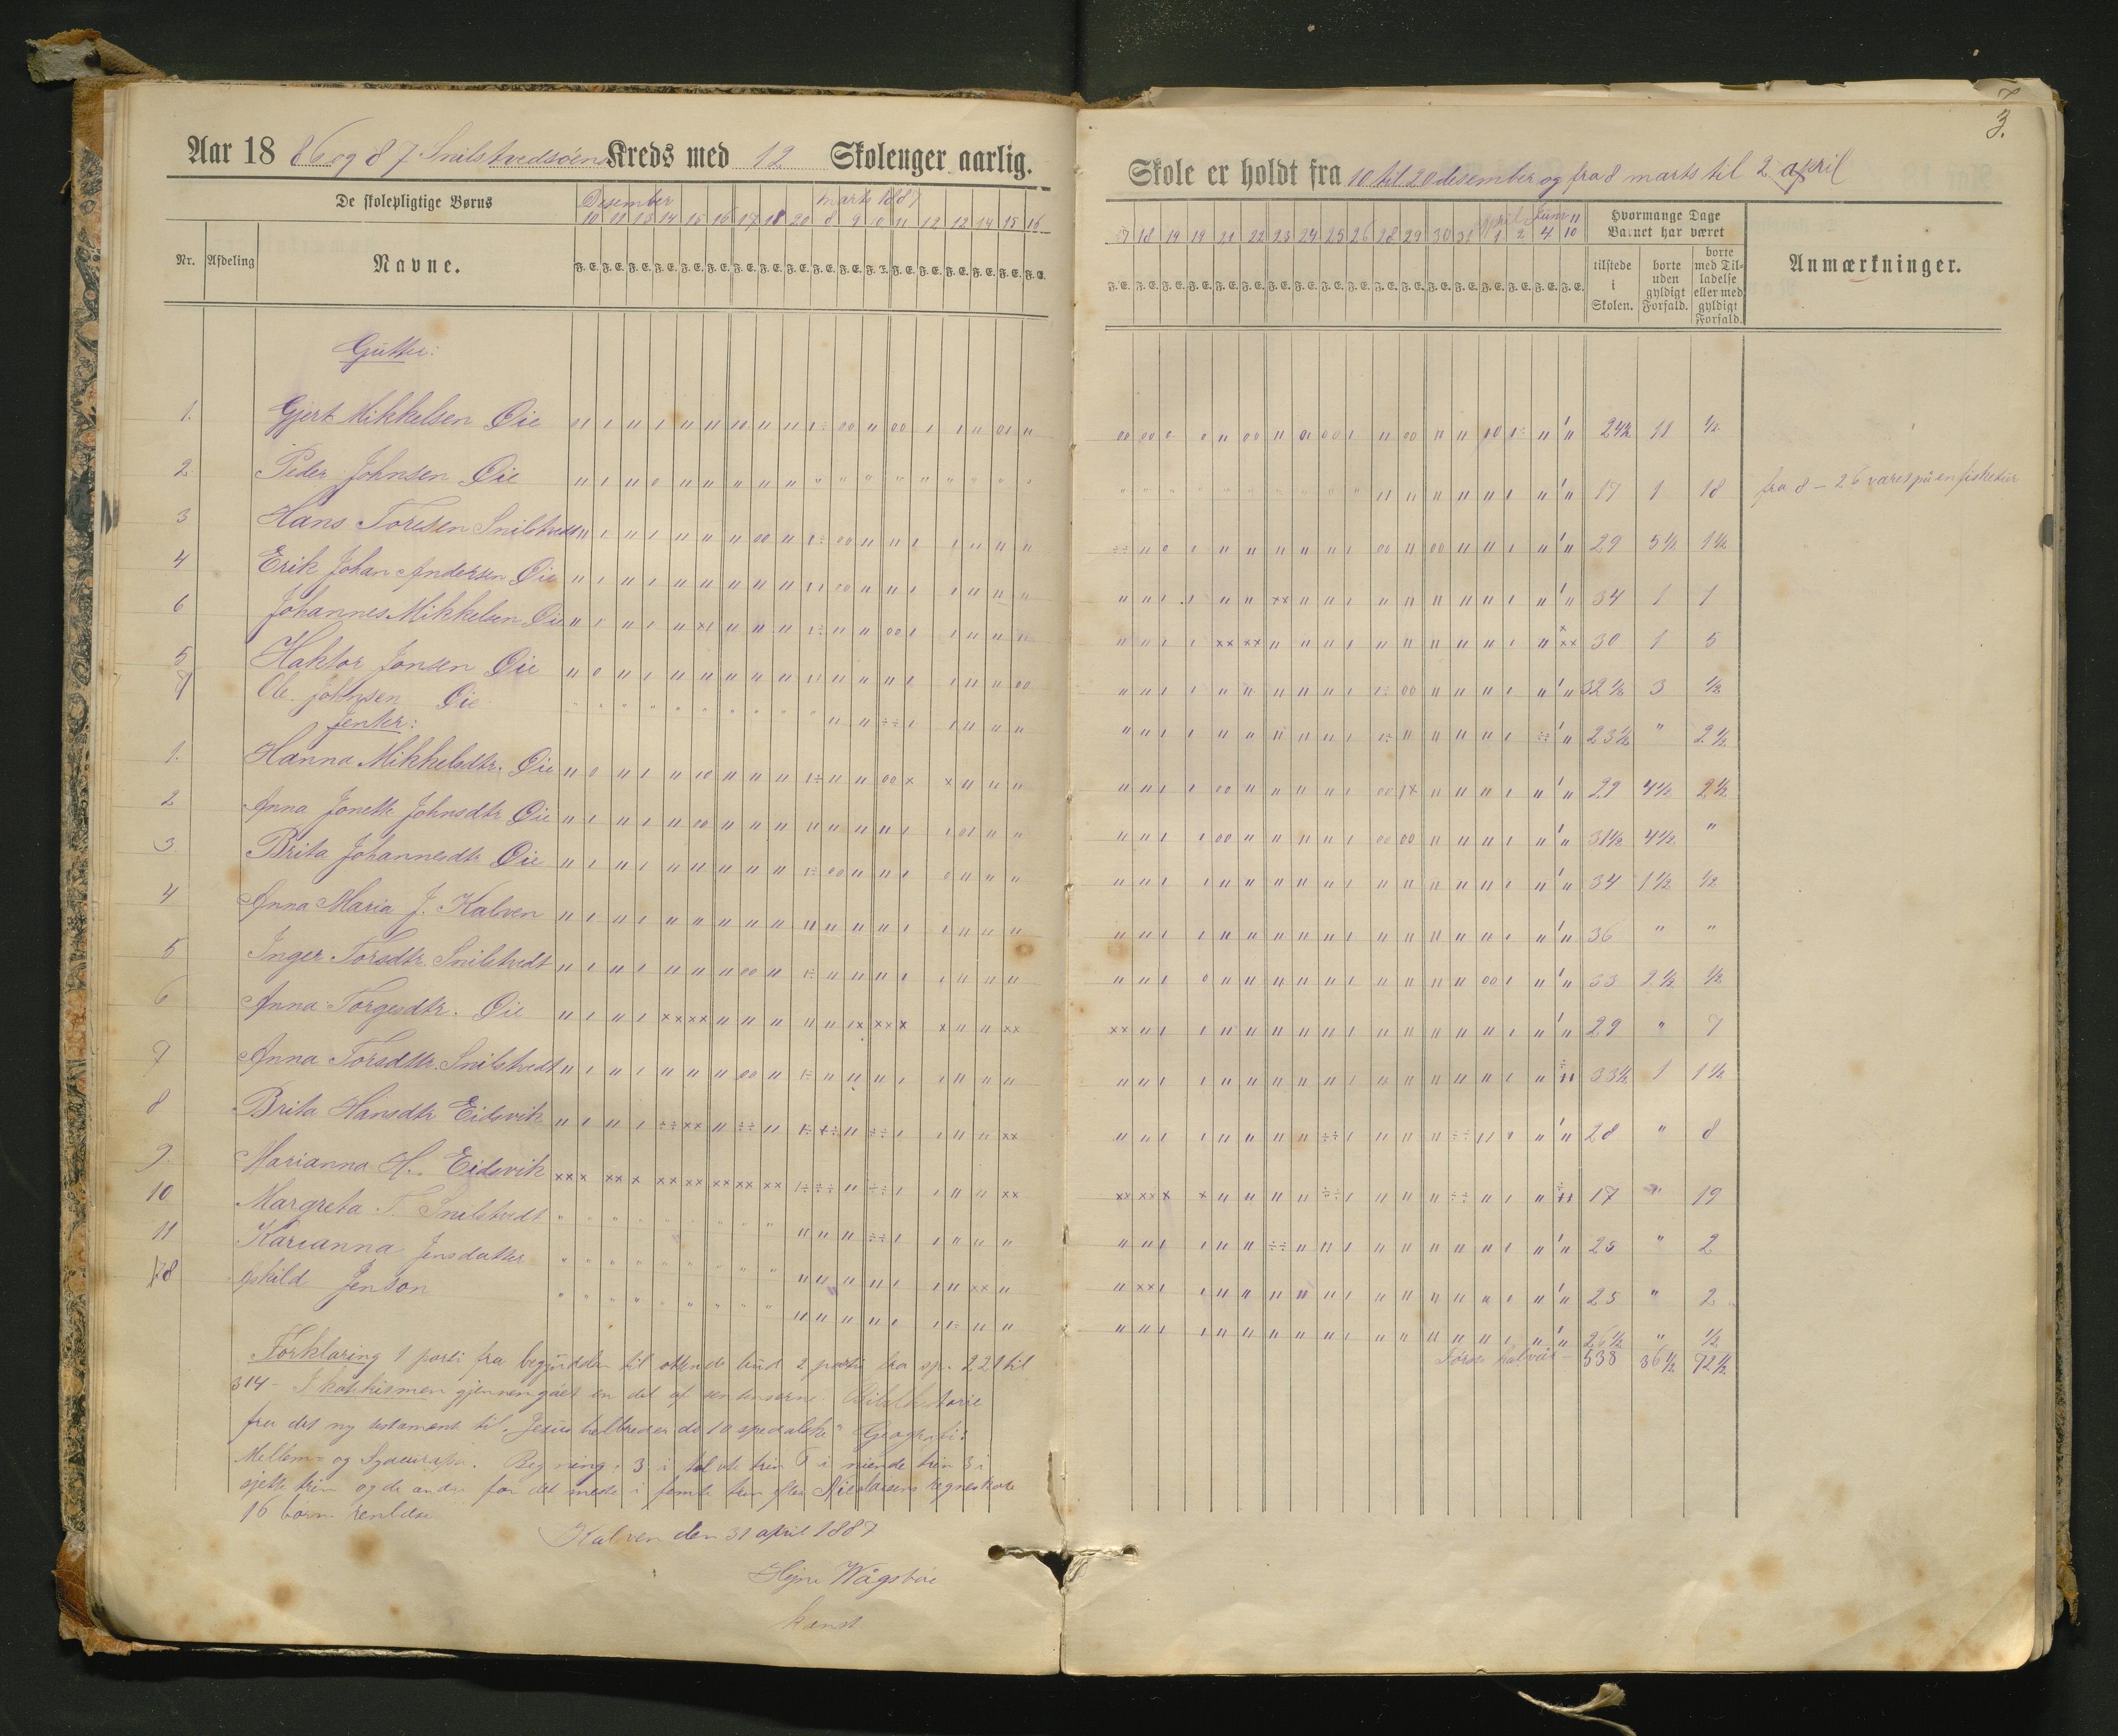 Aar 18 86 og 87. Snilstvedtøens Kreds med 12 Skoleuger aarlig.
De skolepligtige Børns
Desember marts 1887
10 11 13 14 15 16 17 18 20 8 9 10 11 12 12 14 15 16
Nr. Afdeling Navne.
F. E. F. E. F. E. F. E. F. E. F. E. F. E. F. E. F. E. F. E. F. E. F. E. F. E. F. E. F. E. F. E. F. E. F. E.
Gutter:
1. Gjert Mikkelsen Øie
2. Peder Johnsen Øie
3 Hans Toresen Snilstvedt
4 Erik Johan Andersen Øie
6 Johannes Mikkelsen Øie
5 Haktor Jonsen Øie
7 Ole Johnsen Øie
Jenter:
1. Hanna Mikkelsdtr. Øie
2 Anna Jonette Johnsdtr Øie
3. Brita Johannesdtr Øie
4 Anna Maria J. Kalven
5 Inger Torsdtr. Snilstvedt
6 Anna Torgesdtr. Øie
7 Anna Torsdtr. Snilstvedt
8 Brita Hansdtr Eidsvik
9. Marianna H. Eidsvik
10 Margreta T. Snilstvedt
11 Karianna Jensdatter
8 Eskild Jenson
Forklaring 1 parti fra begyndelsen til ottende bud 2 parti fra sp. 221 til
314 - I katekismen gjennemgået en del af sentenserne. Bibelhistorie
fra det ny testament til "Jesus helbreder de 10 spedalske" Geografi:
Mellem- og Sydeuropa. Regning: 3 i tolvte trin 5 i niende trin 3 i
sjette trin og de andre for det meste i femte trin efter Nicolaisens regneskole
16 børn
Kalven den 31 april 1887
Wågsbøe
3.
Skole er holdt fra 10 til 20 desember og fra 8 marts til 2 april
april Juni
17 18 19 19 21 22 23 24 25 26 28 29 30 31 1 2 4 10
Hvormange Dage Barnet har været
tilstede i Skolen. borte uden gyldigt Forfald. borte med Tilladelse eller med gyldigt Forfald.
Anmærkninger.
F. E. F. E. F. E. F. E. F. E. F. E. F. E. F. E. F. E. F. E. F. E. F. E. F. E. F. E. F. E. F. E. F. E. F. E.
24½ 11 ½
17 1 18 fra 8 - 26 været på en fisketur
29 5½ 1½
34 1 1
30 1 5
32½ 3 ½
23½ " 2½
29 4½ 2½
31½ 4½ "
34 1½ ½
36 " "
33 2½ ½
29 " 7
33½ 1 1½
28 " 8
17 " 19
25 " 2
25 " 2
26½ " ½
538 36½ 72½